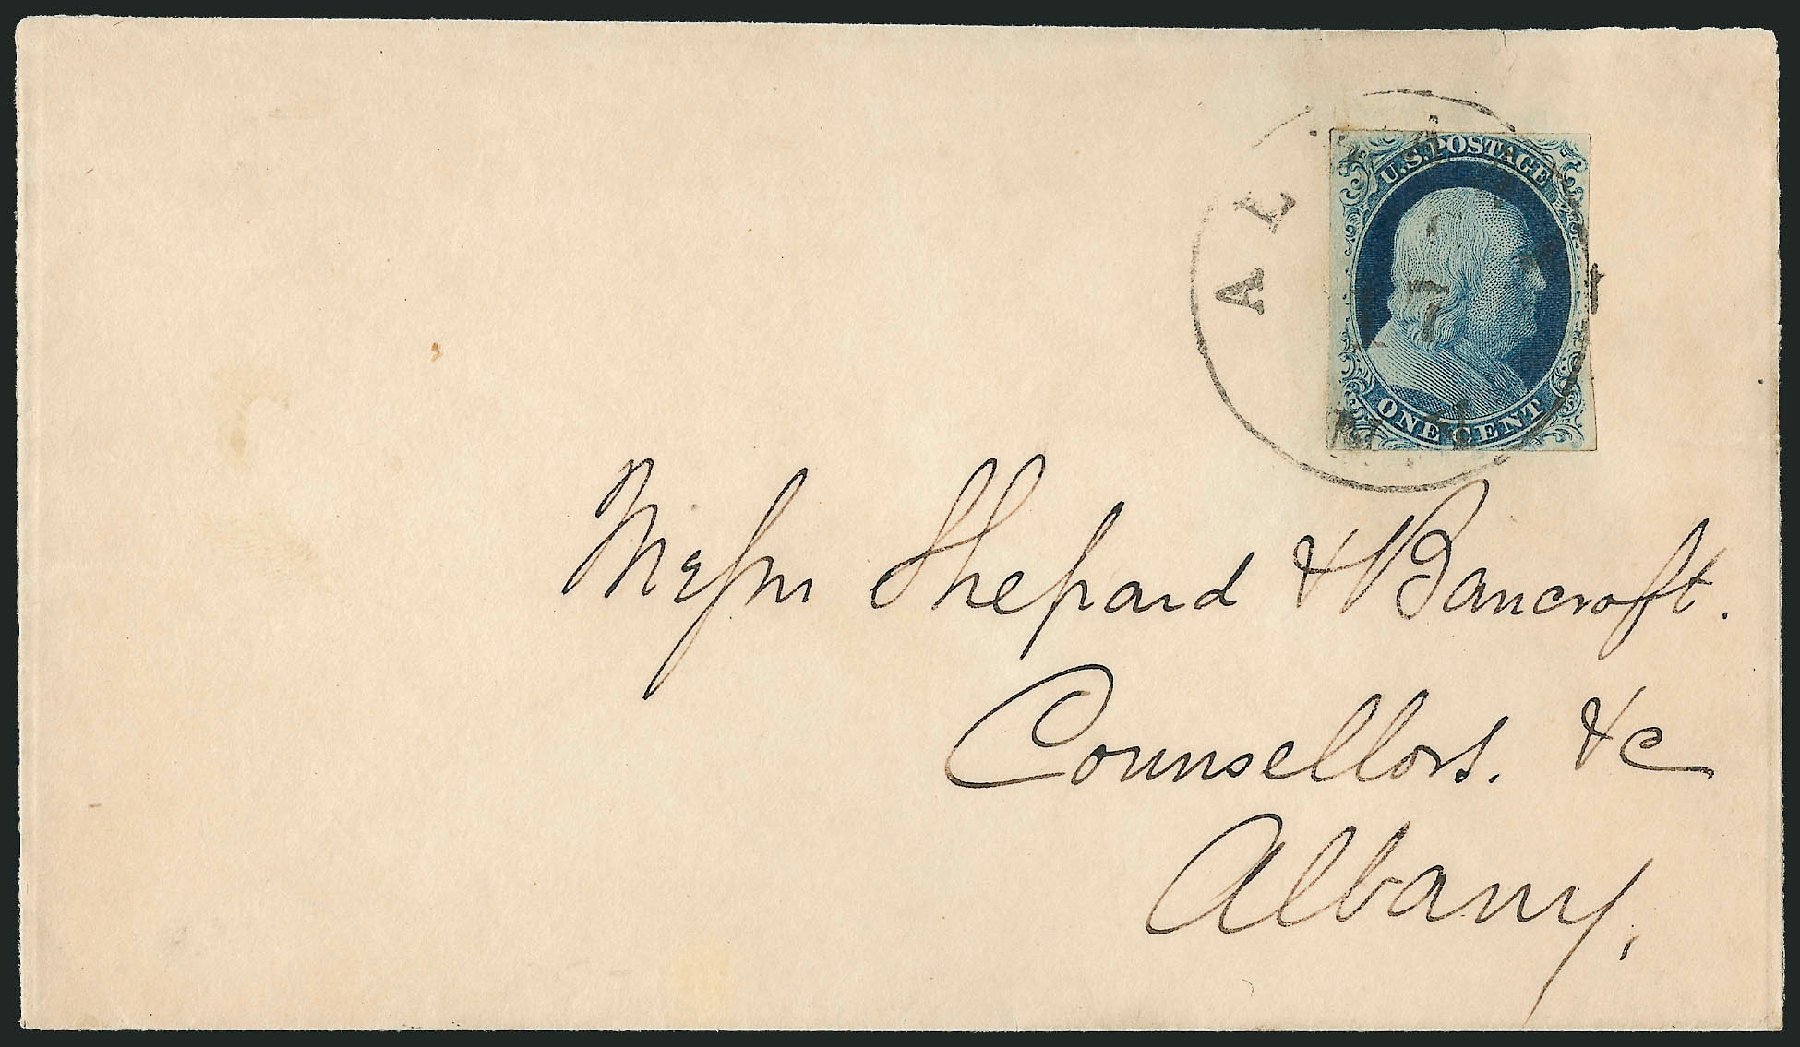 U.S. POSTAGE
ONE CENT
AL
7
Messrs Shepard & Bancroft.
Counsellors. &c
Albany,